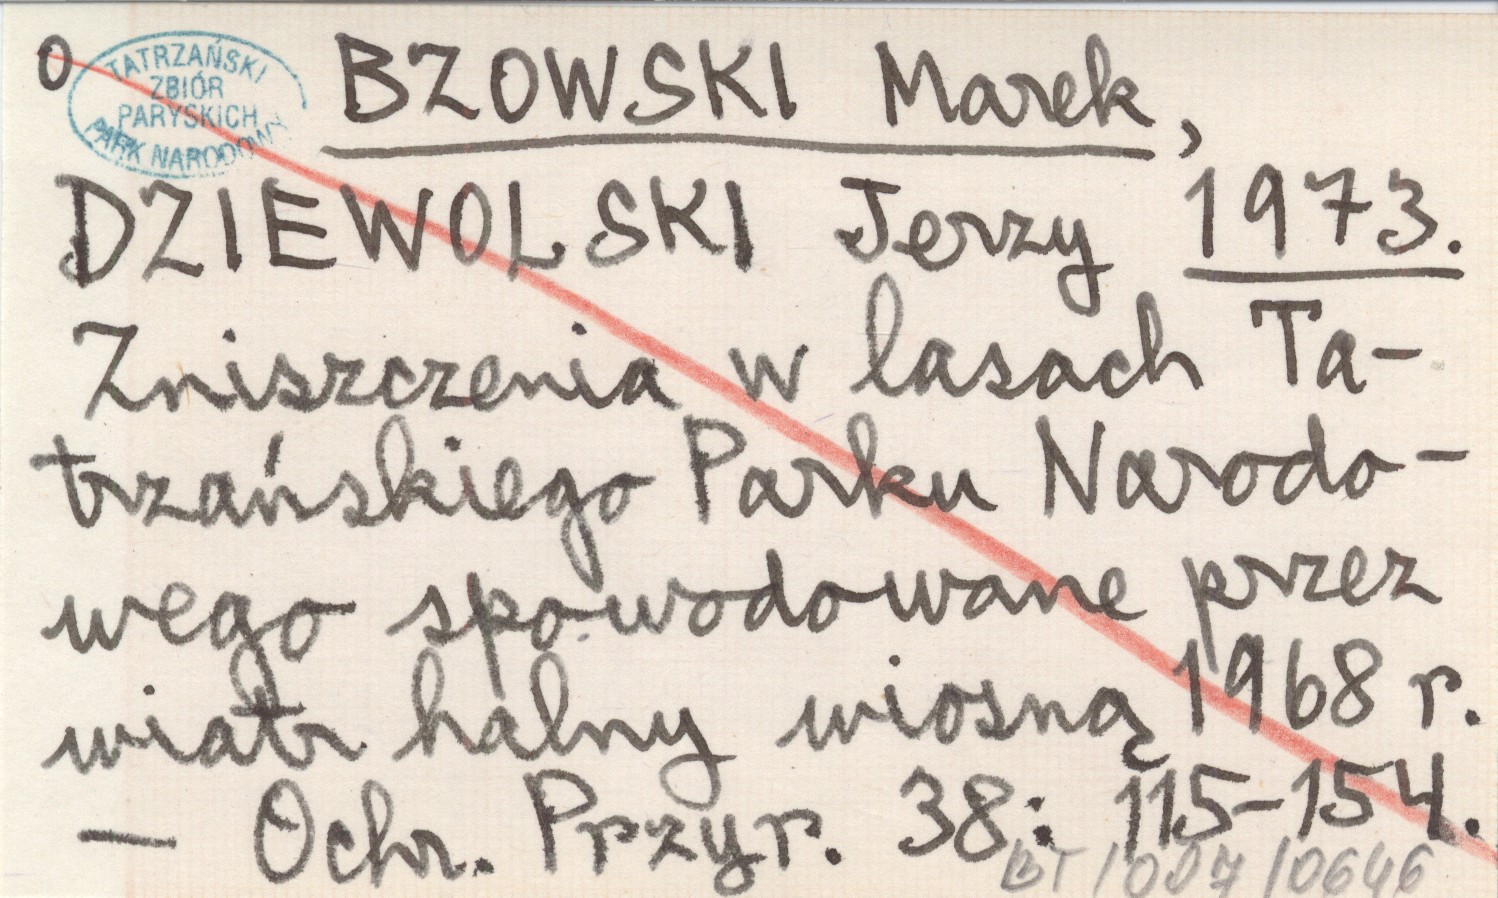 O
TATRZAŃSKI
ZBIÓR
PARYSKICH
PARK NARODOWY
BZOWSKI Marek,
DZIEWOLSKI Jerzy 1973.
Zniszczenia w lasach Ta-
trzańskiego Parku Narodo-
wego spowodowane przez
wiatr halny wiosną 1968 r.
— Ochr. Przyr. 38: 115-154.
BT/007/0646